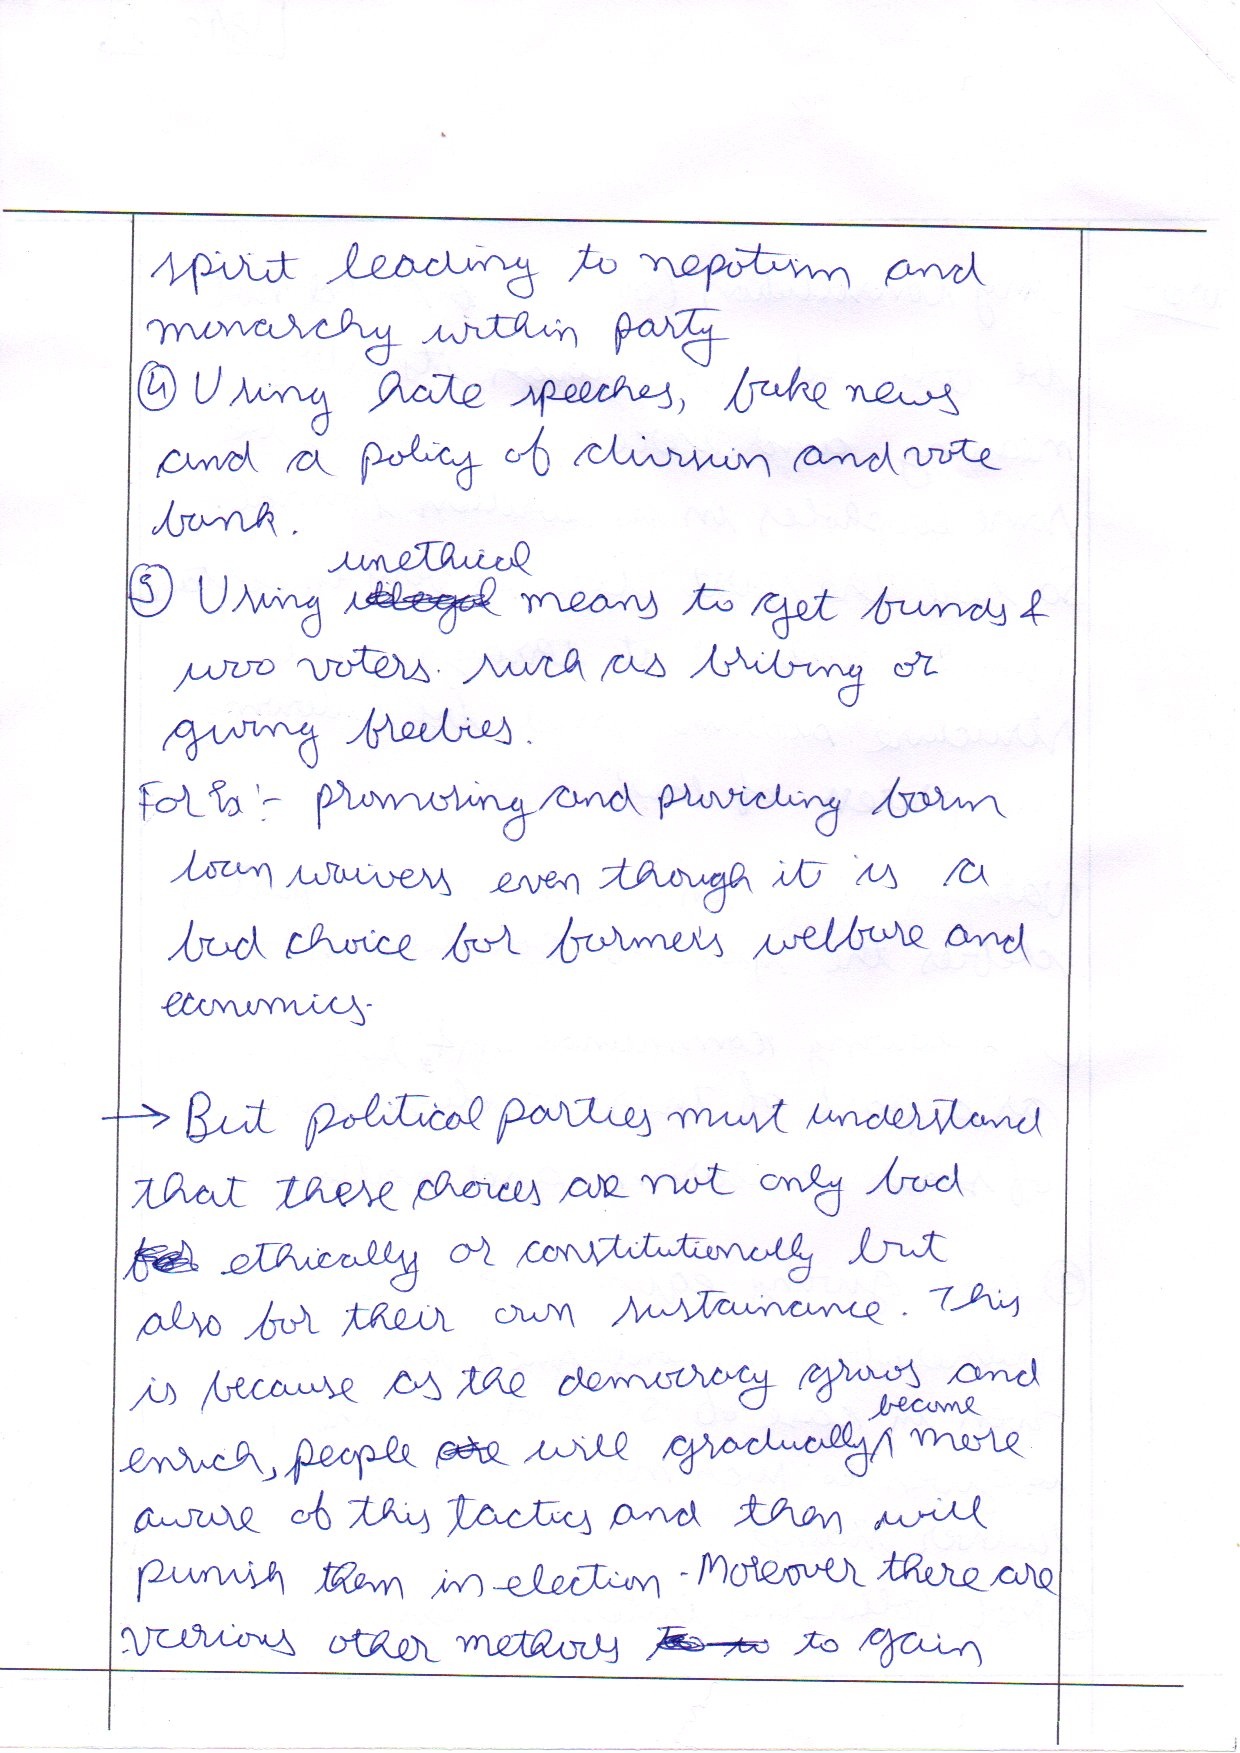 spirit leading to nepotism and
monarchy within party
④ Using hate speeches, fake news
and a policy of division and vote
bank.
unethical
⑤ Using illegal means to get funds &
woo voters. such as bribing or
giving freebies.
For Ex :- promosing and providing farm
loan waivers even though it is a
bad choice for farmer's welfare and
economics.
→ But political parties must understand
that these choices are not only bad
for ethically or constitutionally but
also for their own sustainance. This
is because as the democracy grows and
become
enrich, people are will gradually ∧ more
aware of this tactics and then will
punish them in election. Moreover there are
various other methods to gain